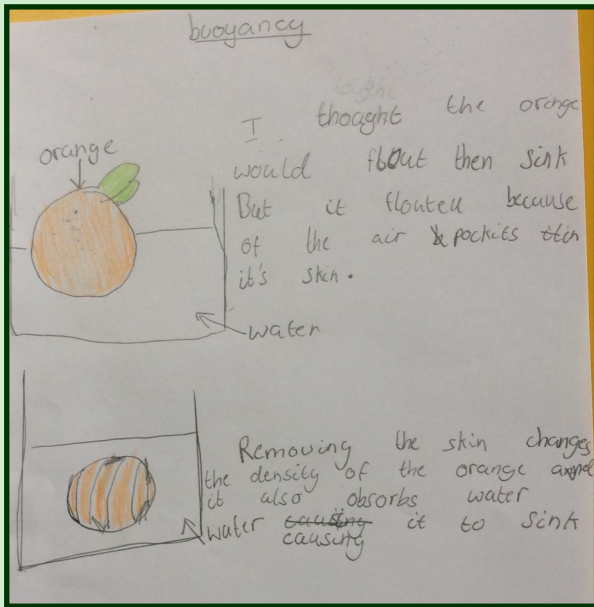 buoyancy
I thought the orange
orange
would float then sink
But it floated because
of the air pockits in
it's skin.
water
Removing the skin changes
the density of the orange and
it also absorbs water
water causing it to sink
causing